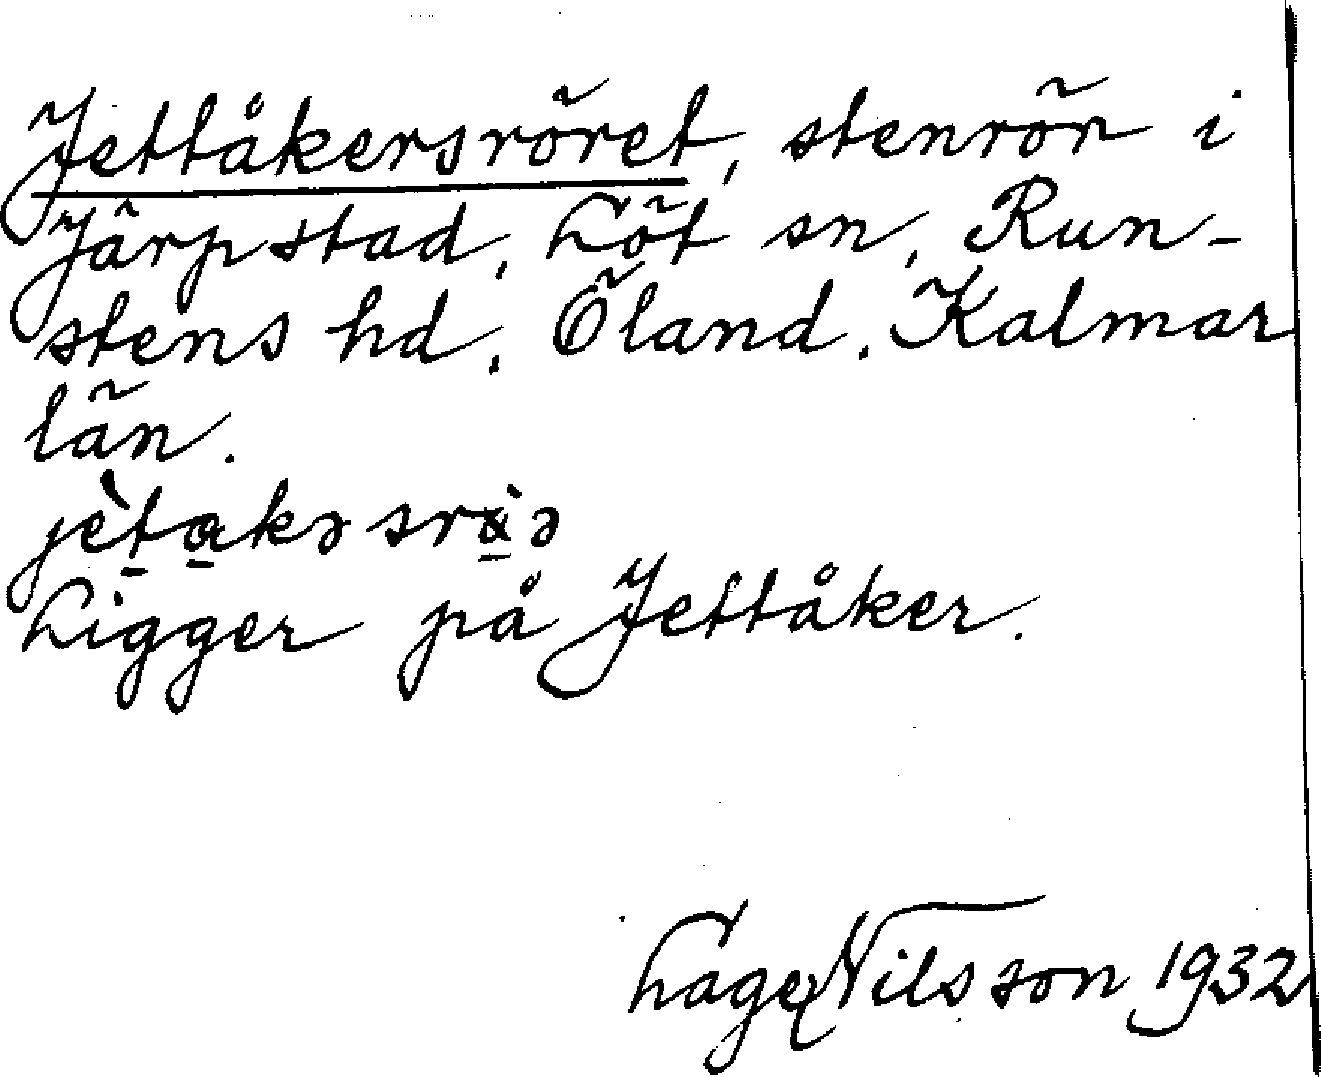 Jettåkersröret, stenrör i
Järpstad, Löt sn, Run-
stens hd, Öland. Kalmar
län.
jèt̠a̠kəsrö̠̀ə
Ligger på Jettåker.
Lage Nilsson 1932